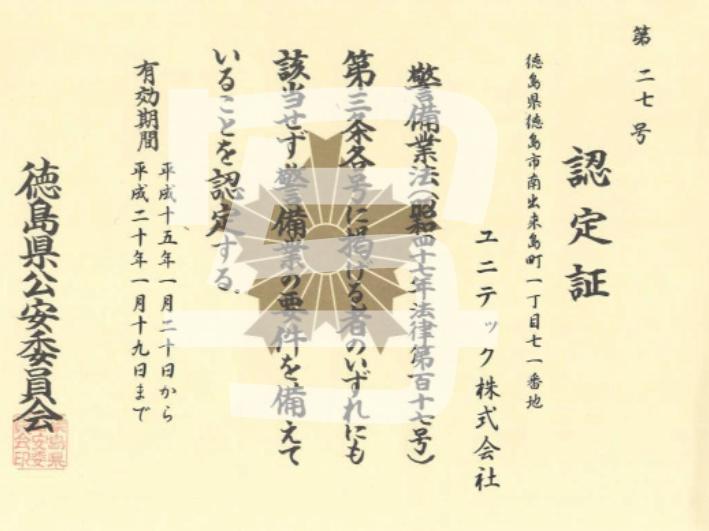 第二七号
認定証
徳島県徳島市南出来島町一丁目七一番地
ユニテック株式会社
警備業法(昭和四十七年法律第百十七号)
第三条各号に掲げる者のいずれにも
該当せず警備業の要件を備えて
いることを認定する。
有効期間
平成十五年一月二十日から
平成二十年一月十九日まで
徳島県公安委員会